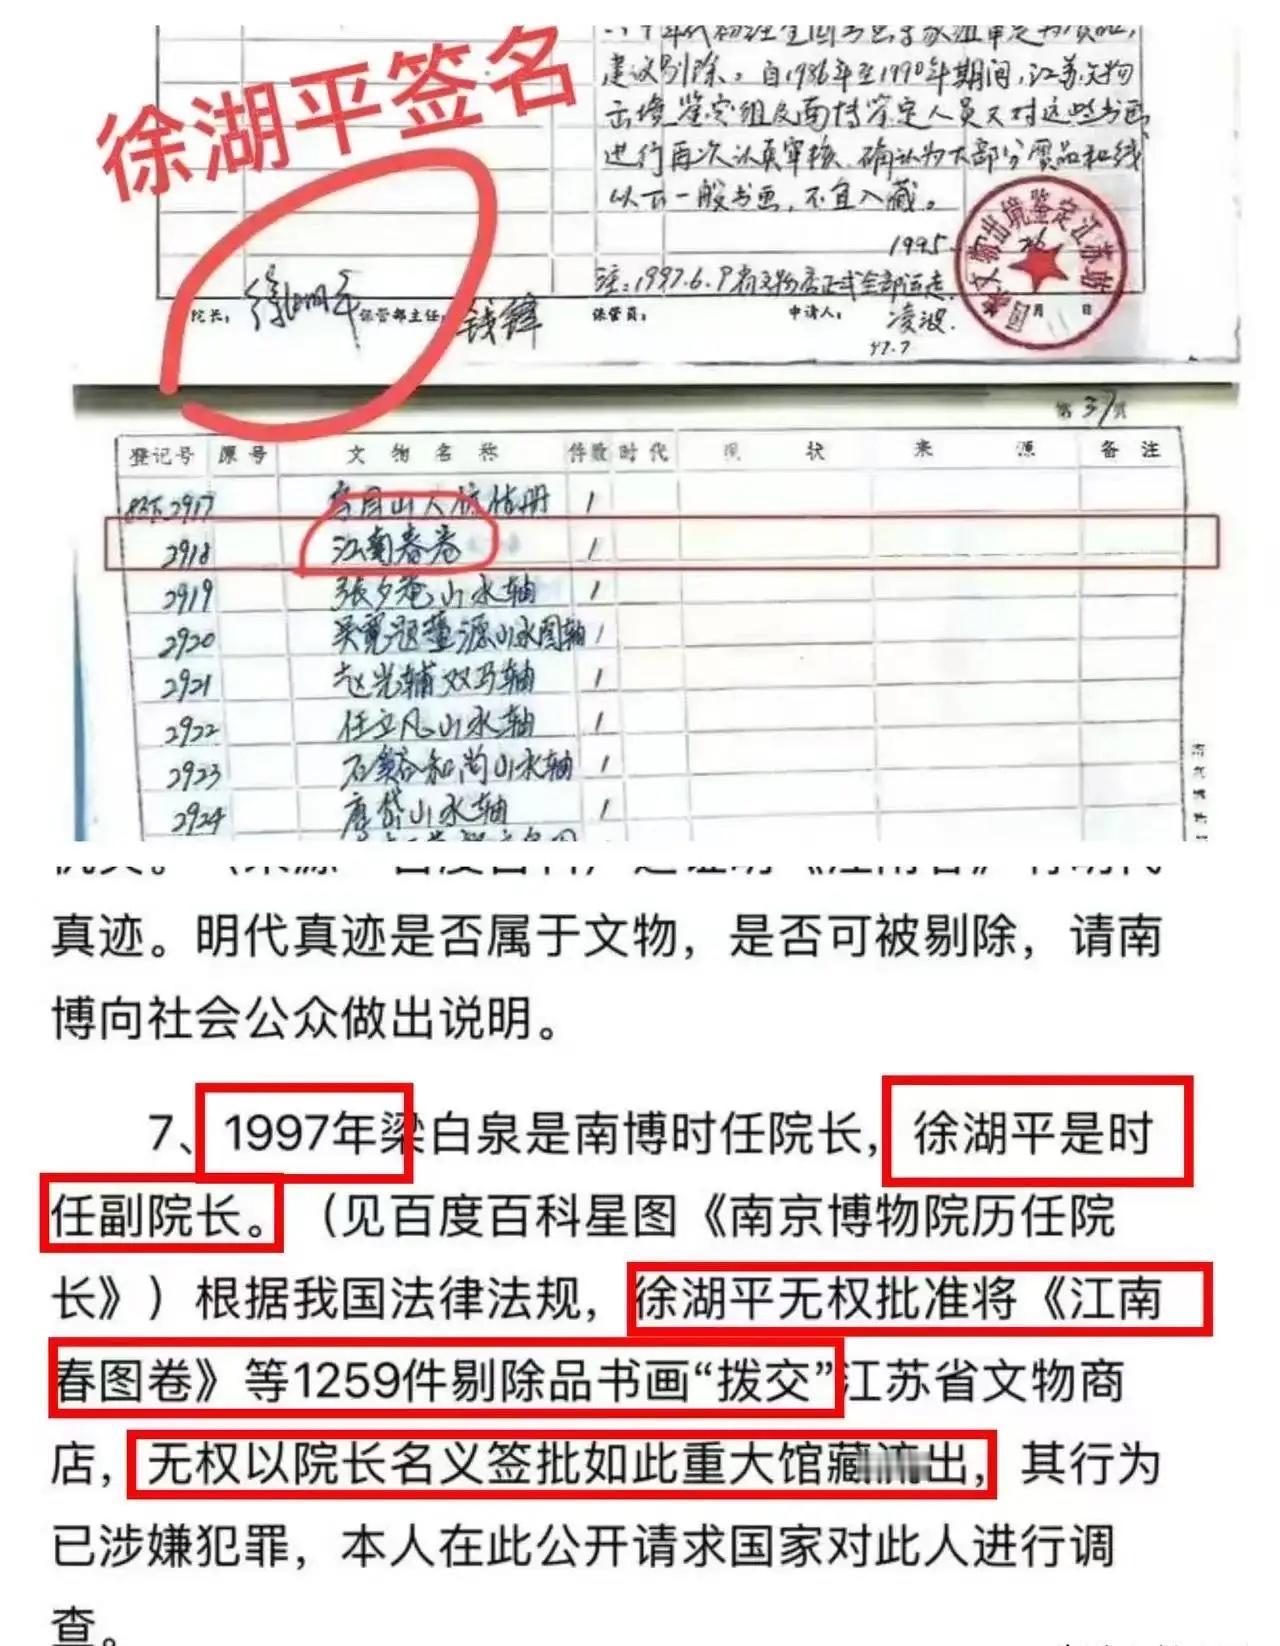 徐湖平签名
建议剔除。自1986年至1990年期间，江苏文物
出境鉴定组及南博鉴定人员又对这些书画
进行再次认真审核，确认为大部分赝品和线
以下一般书画，不宜入藏。
1995.
国家文物出境鉴定江苏站
月 日
注：1997.6.9
院长： 徐湖平 保管部主任： 钱锋 保管员： 申请人： 凌波.
97.7
第37页
登记号 原号 文物名称 件数 时代 现状 来源 备注
2917 1
2918 江南春卷 1
2919 張夕菴山水轴 1
2920 吴寬题董源山水图轴 1
2921 赵光辅双马轴 1
2922 任立凡山水轴 1
2923 石谿和尚山水轴 1
2924 唐岱山水轴 1
真迹。明代真迹是否属于文物，是否可被剔除，请南
博向社会公众做出说明。
7、1997年梁白泉是南博时任院长，徐湖平是时
任副院长。（见百度百科星图《南京博物院历任院
长》）根据我国法律法规，徐湖平无权批准将《江南
春图卷》等1259件剔除品书画“拨交”江苏省文物商
店，无权以院长名义签批如此重大馆藏流出，其行为
已涉嫌犯罪，本人在此公开请求国家对此人进行调
查。